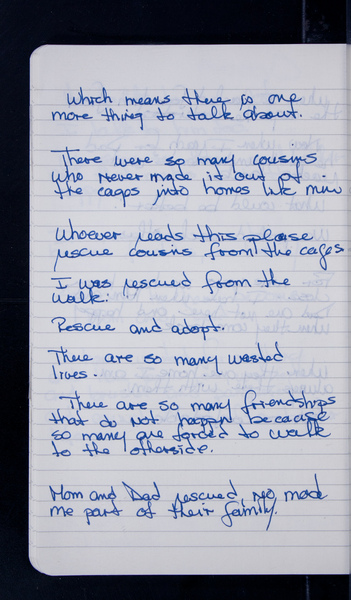 Which means there is one
more thing to talk about.
There were so many cousins
who never made it out of
the cages into homes like mine
Whoever reads this please
rescue cousins from the cages
I was rescued from the
walk.
Rescue and adopt.
There are so many wasted
lives.
There are so many friendships
that do not happen because
so many are forced to walk
to the otherside.
Mom and Dad rescued me, made
me part of their family.